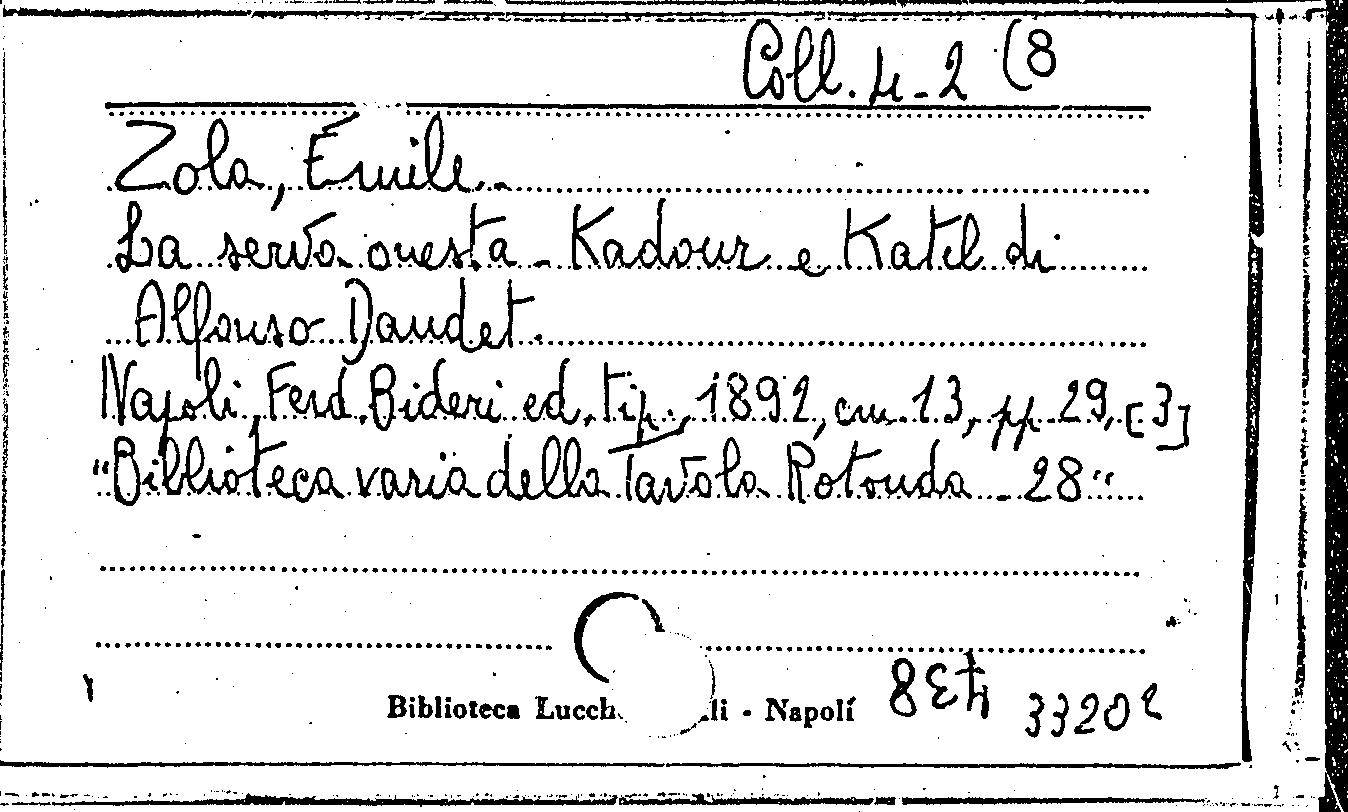 Coll. 4-2 (8
Zola, Émile.-
La serva onesta - Kadour e Katel di
Alfonso Daudet.
Napoli, Ferd. Bideri ed. tip., 1892, cm. 13, pp. 29, [3]
"Biblioteca varia della Tavola Rotonda - 28"
Biblioteca Lucch li - Napoli
33202